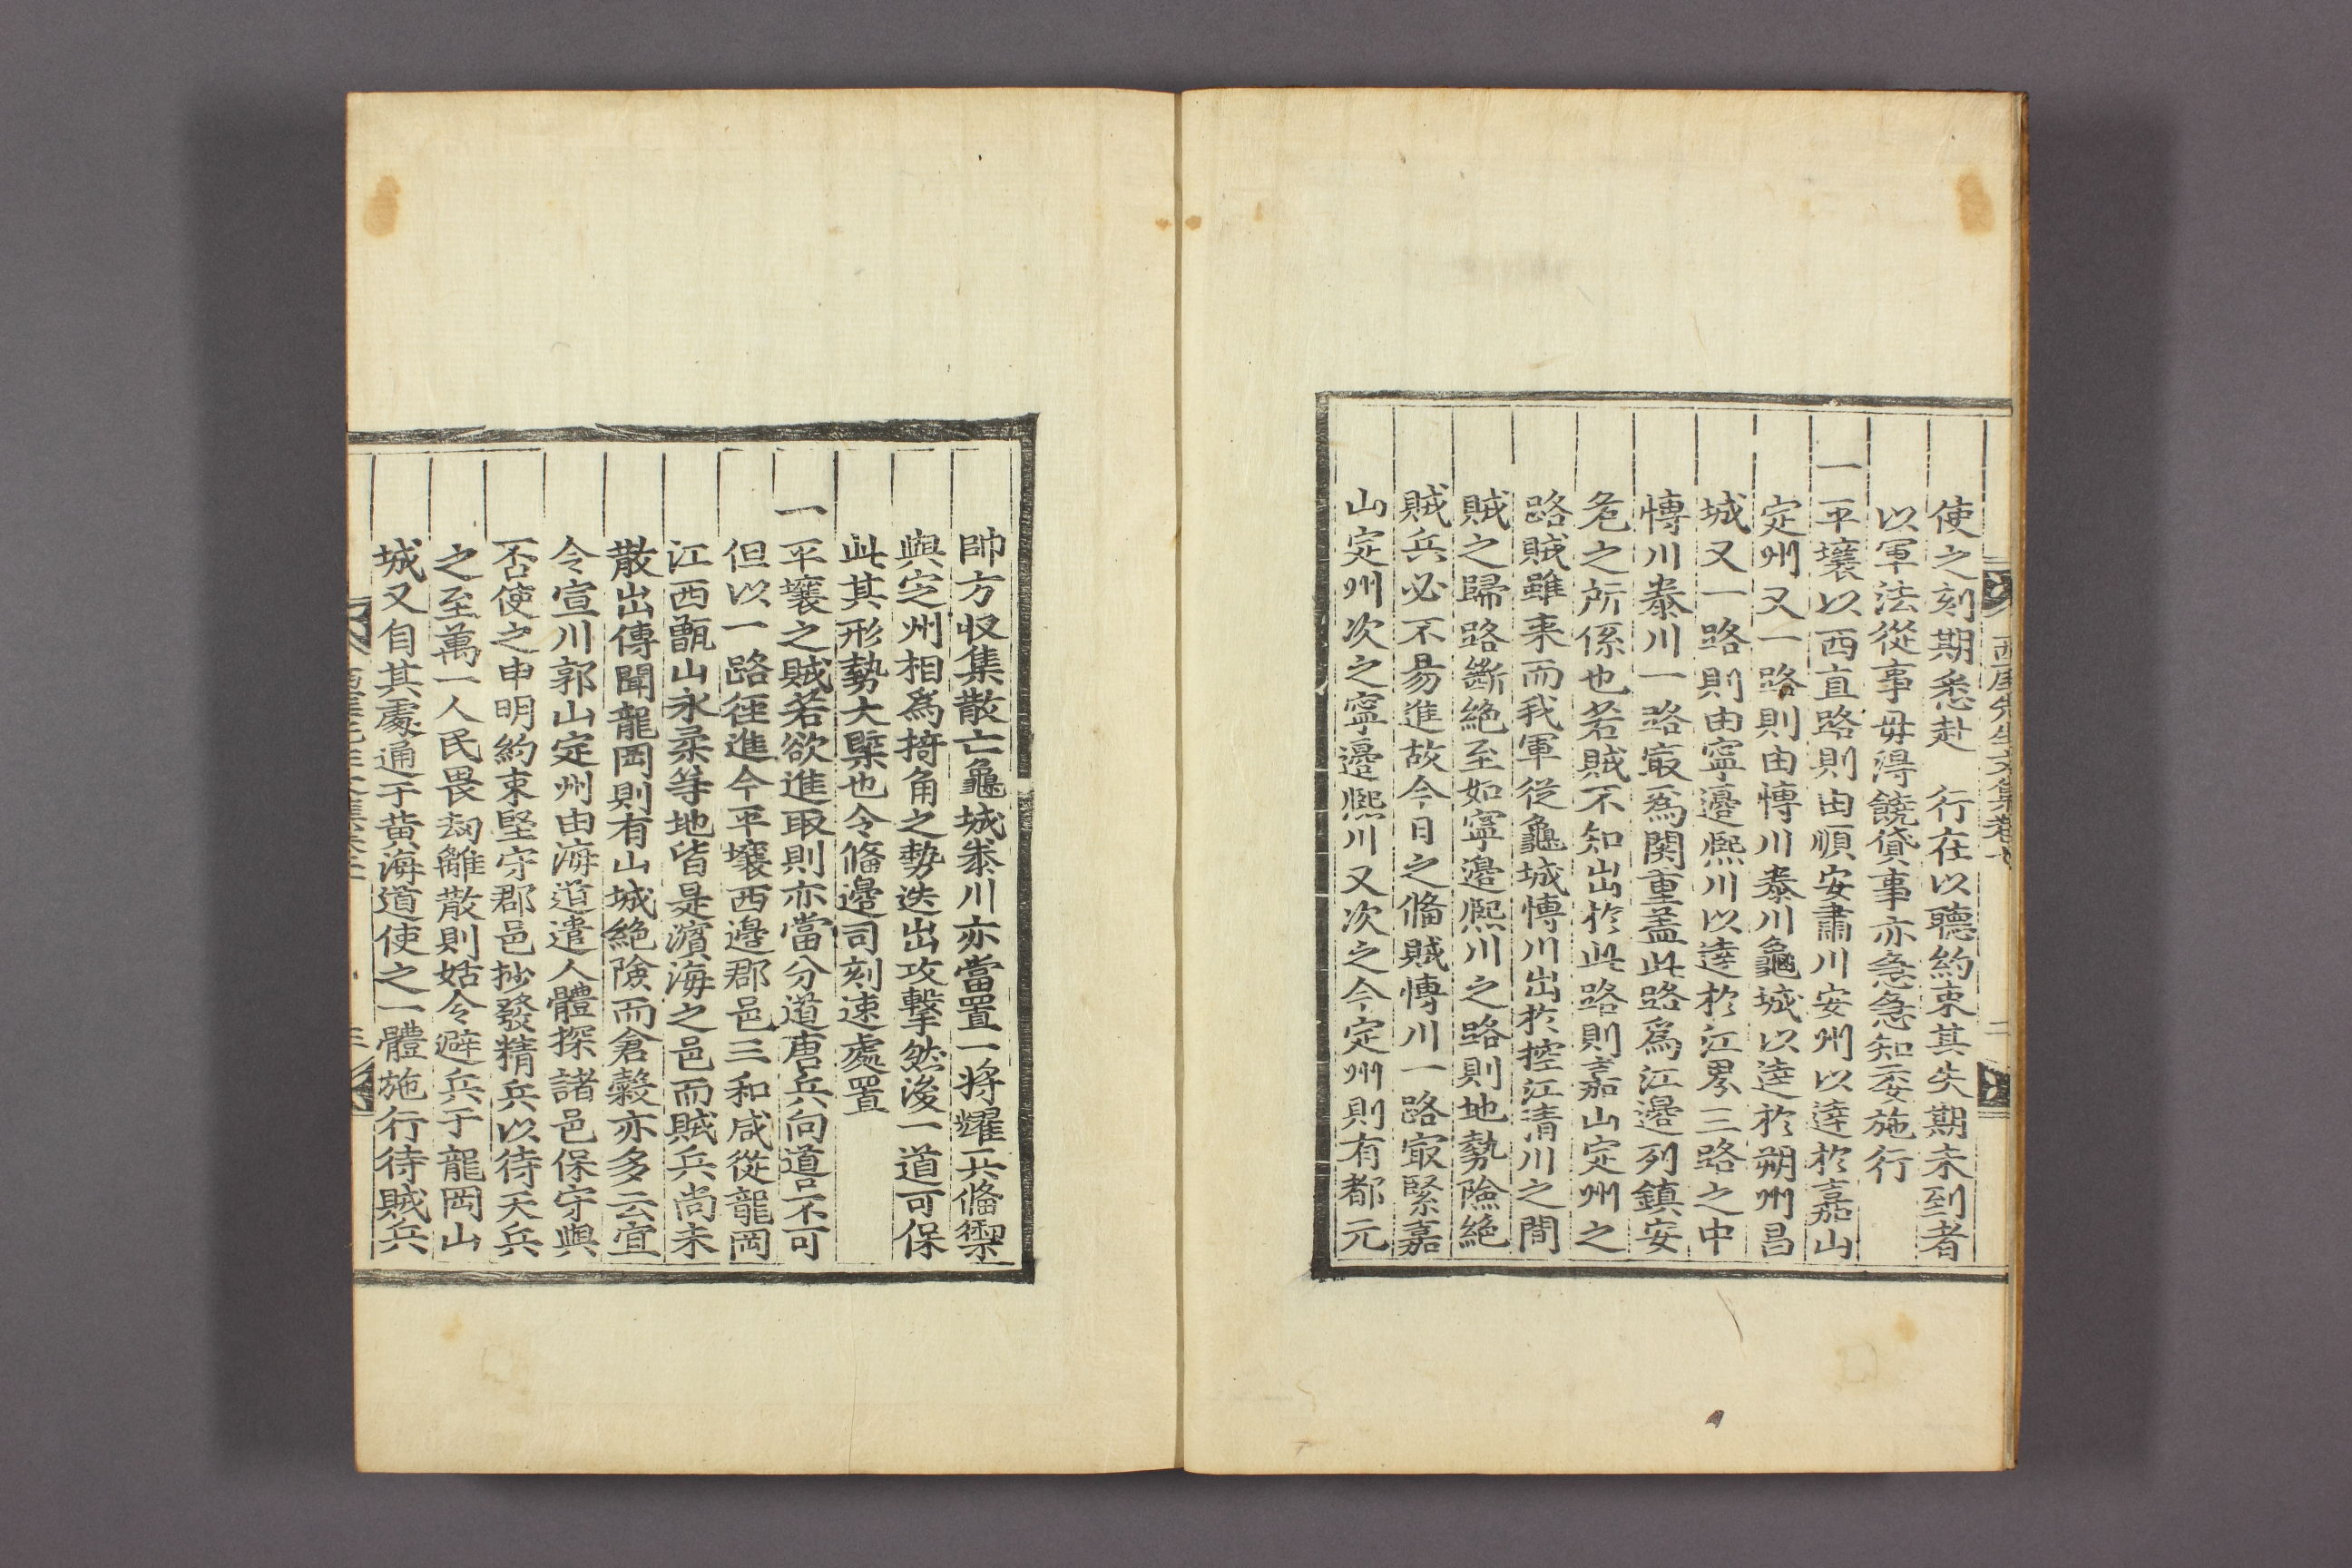 西厓先生文集卷七
二
使之刻期悉赴　行在以聽約束其失期未到者
以軍法從事毋得饒貸事亦急急知委施行
一平壤以西直路則由順安肅川安州以達於嘉山
定州又一路則由博川泰川龜城以達於朔州昌
城又一路則由寧邊熈川以達於江界三路之中
博川泰川一路㝡爲関重盖此路爲江邊列鎮安
危之所係也若賊不知出於此路則嘉山定州之
路賊雖来而我軍從龜城博川出於控江清川之間
賊之歸路斷絶至如寧邊熈川之路則地勢險絶
賊兵必不昜進故今日之俻賊博川一路㝡緊嘉
山定州次之寧邊熈川又次之今定州則有都元
帥方収集散亡龜城泰川亦當置一將耀兵俻禦
與定州相爲掎角之勢迭出攻擊然後一道可保
此其形勢大槩也令俻邊司刻速處置
一平壤之賊若欲進取則亦當分道唐兵向導不可
但以一路徑進今平壤西邊郡邑三和咸從龍岡
江西甑山永柔等地皆是濵海之邑而賊兵尚未
散出傳聞龍岡則有山城絶險而倉穀亦多云宜
令宣川郭山定州由海道遣人體探諸邑保守與
否使之申明約束堅守郡邑抄發精兵以待天兵
之至萬一人民畏刼離散則姑令避兵于龍岡山
城又自其處通于黄海道使之一體施行待賊兵
三